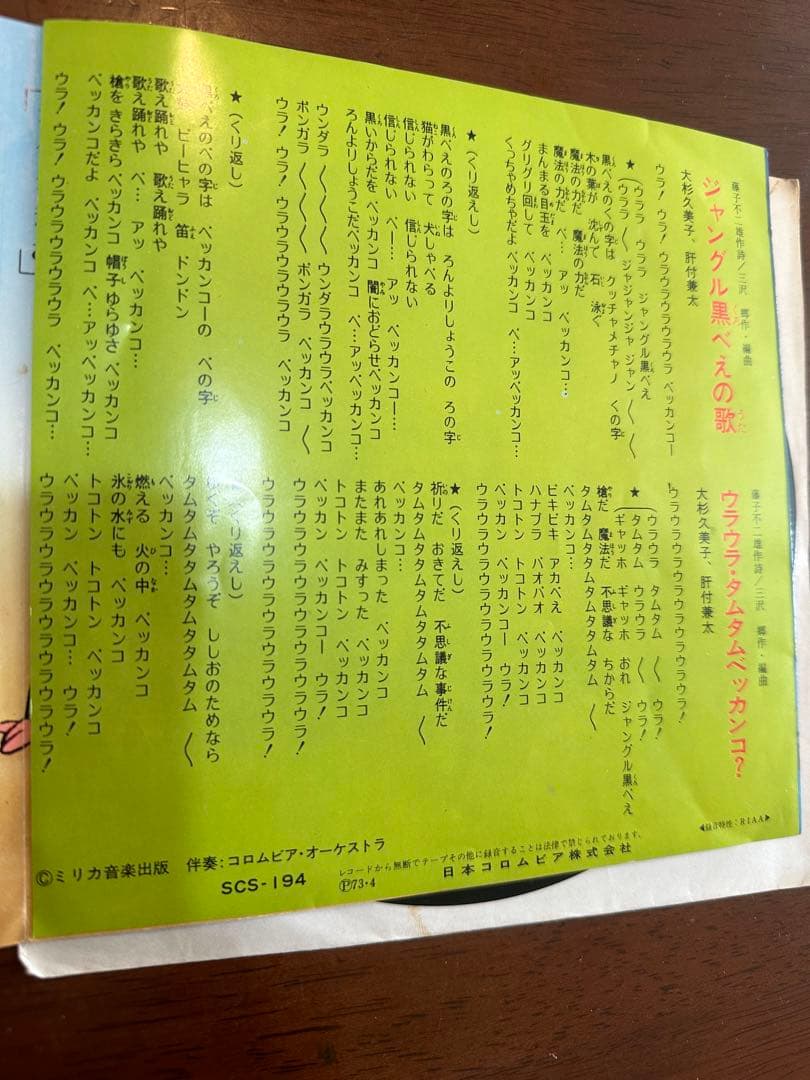 藤子不二雄作詩/三沢 郷作・編曲
ジャングル黒べえの歌
大杉久美子、肝付兼太
ウラ! ウラ! ウラウラウラウラウラ ベッカンコー
★(ウララ ウララ ジャングル黒べえ
(ウララ 〱 ジャジャンジャ ジャン 〱 〱
黒べえのくの字は クッチャメチャノ くの字
木の葉が 沈んで 石 泳ぐ
魔法の力だ 魔法の力だ
魔法の力だ ベ… アッ ベッカンコ…
まんまる目玉を ベッカンコ
グリグリ回して ベッカンコ
くっちゃめちゃだよ ベッカンコ ベ…アッベッカンコ…
★(くり返えし)
黒べえのろの字は ろんよりしょうこの ろの字
猫がわらって 犬しゃべる
信じられない 信じられない
信じられない ベー… アッ ベッカンコー…
黒いからだを ベッカンコ 闇におどらせベッカンコ
ろんよりしょうこだベッカンコ ベ…アッベッカンコ…
ウンダラ 〱 〱 〱 ウンダラウラウラベッカンコ
ボンガラ 〱 〱 〱 ボンガラ ベッカンコ 〱
ウラ! ウラ! ウラウラウラウラウラ ベッカンコ
★(くり返し)
黒べえのべの字は ベッカンコーの べの字
ピーヒャラ 笛 ドンドン
歌え踊れや 歌え踊れや
歌え踊れや ベ… アッ ベッカンコ…
槍を きらきら ベッカンコ 帽子 ゆらゆさ ベッカンコ
ベッカンコだよ ベッカンコ ベ…アッベッカンコ…
ウラ! ウラ! ウラウラウラウラウラ ベッカンコ…
藤子不二雄作詩/三沢 郷作・編曲
ウラウラ・タムタムベッカンコ?
大杉久美子、肝付兼太
ウラウラウラウラウラウラウラウラウラ!
★(ウラウラ タムタム 〱 ウラ!
タムタム ウラウラ 〱 ウラ!
ギャッホ ギャッホ おれ ジャングル黒べえ
槍だ 魔法だ 不思議な ちからだ
タムタムタムタムタムタムタムタム 〱
ベッカンコ…
ビキビキ アカベえ ベッカンコ
ハナブラ パオパオ ベッカンコ
トコトン トコトン ベッカンコ
ベッカン ベッカンコー ウラ!
ウラウラウラウラウラウラウラウラウラ!
★(くり返えし)
祈りだ おきてだ 不思議な事件だ
タムタムタムタムタムタムタムタム 〱
ベッカンコ…
あれあれしまった ベッカンコ
またまた みすった ベッカンコ
トコトン トコトン ベッカンコ
ベッカン ベッカンコー ウラ!
ウラウラウラウラウラウラウラウラウラ!
(くり返えし)
ゆくぞ やろうぞ ししおのためなら
タムタムタムタムタムタムタムタム 〱
ベッカンコ…
燃える 火の中 ベッカンコ
氷の水にも ベッカンコ
トコトン トコトン ベッカンコ
ベッカン ベッカンコ… ウラ!
ウラウラウラウラウラウラウラウラウラ!
◀録音特性:RIAA▶
レコードから無断でテープその他に録音することは法律で禁じられております。
日本コロムビア株式会社
Ⓟ73・4
伴奏:コロムビア・オーケストラ
SCS-194
©ミリカ音楽出版